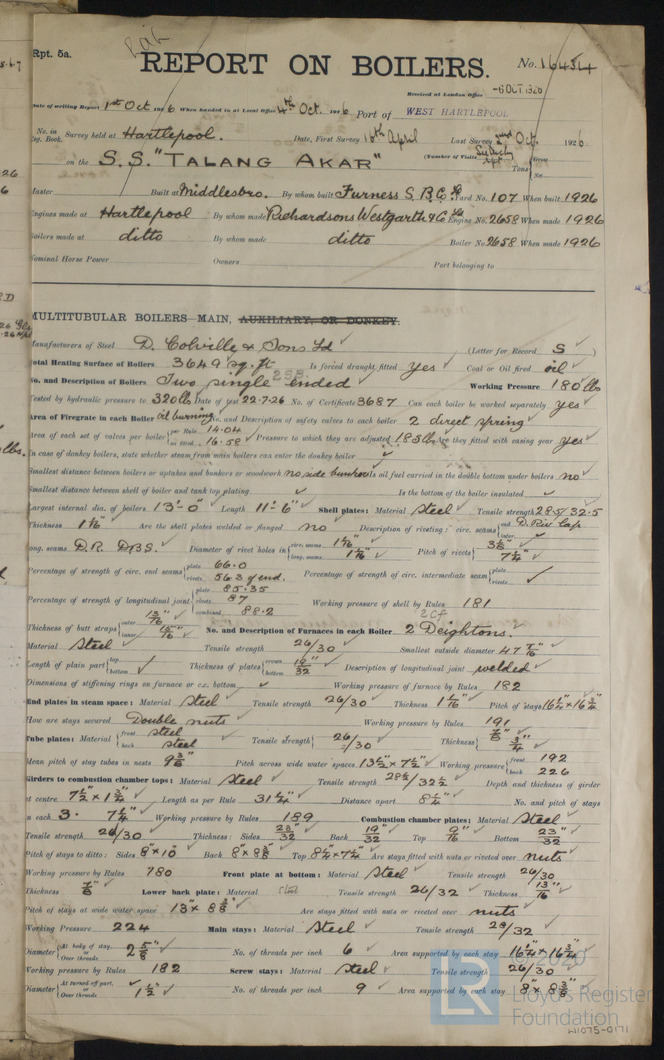 Rpt. 5a.
REPORT ON BOILERS.
No. 16454
Received at London Office -6 OCT 1926
Date of writing Report 1st Oct 1926 When handed in at Local Office 4th Oct. 1926 Port of WEST HARTLEPOOL
No. in Reg. Book. Survey held at Hartlepool. Date, First Survey 16th April Last Survey 2nd Oct. 1926
on the S.S. "TALANG AKAR" (Number of Visits Tons Gross Net
Master Built at Middlesbro. By whom built Furness S. B. Co. Ld Yard No. 107 When built 1926
Engines made at Hartlepool By whom made Richardsons Westgarth & Co Ld Engine No. 2658 When made 1926
Boilers made at ditto By whom made ditto Boiler No. 2658 When made 1926
Nominal Horse Power Owners Port belonging to
MULTITUBULAR BOILERS MAIN, AUXILIARY, OR DONKEY.
Manufacturers of Steel D. Colville & Sons Ld (Letter for Record S)
Total Heating Surface of Boilers 3649 sq. ft Is forced draught fitted yes Coal or Oil fired oil
No. and Description of Boilers Two single ended Working Pressure 180 lbs
Tested by hydraulic pressure to 320 lbs Date of test 22-7-26 No. of Certificate 3687 Can each boiler be worked separately yes
Area of Firegrate in each Boiler oil burning No. and Description of safety valves to each boiler 2 direct spring
Area of each set of valves per boiler per Rule 14.04 as fitted 16.58 Pressure to which they are adjusted 185 lbs Are they fitted with easing gear yes
In case of donkey boilers, state whether steam from main boilers can enter the donkey boiler
Smallest distance between boilers or uptakes and bunkers or woodwork no side bunkers Is oil fuel carried in the double bottom under boilers no
Smallest distance between shell of boiler and tank top plating Is the bottom of the boiler insulated
Largest internal dia. of boilers 13'-0" Length 11'-6" Shell plates: Material Steel Tensile strength 28.5/32.5
Thickness 1 1/16" Are the shell plates welded or flanged no Description of riveting: circ. seams end D. Riv Lap inter.
long. seams D.R. D.B.S. Diameter of rivet holes in circ. seams 1 1/16" long. seams 1 1/16" Pitch of rivets 3 1/8" 7 1/4"
Percentage of strength of circ. end seams plate 66.0 rivets 56.3 of end. Percentage of strength of circ. intermediate seam plate rivets
Percentage of strength of longitudinal joint plate 85.35 rivets 87 combined 88.2 Working pressure of shell by Rules 181
Thickness of butt straps outer 13/16" inner 15/16" No. and Description of Furnaces in each Boiler 2 Deightons.
Material Steel Tensile strength 26/30 Smallest outside diameter 47 7/16"
Length of plain part top bottom Thickness of plates crown bottom 19/32" Description of longitudinal joint welded
Dimensions of stiffening rings on furnace or c.c. bottom Working pressure of furnace by Rules 182
End plates in steam space: Material Steel Tensile strength 26/30 Thickness 1 1/16" Pitch of stays 16 1/4" x 16 3/4"
How are stays secured Double nuts Working pressure by Rules 191
Tube plates: Material front steel back steel Tensile strength 26/30 Thickness 7/8" 3/4"
Mean pitch of stay tubes in nests 9 3/8" Pitch across wide water spaces 13 1/2" x 7 1/2" Working pressure front 192 back 226
Girders to combustion chamber tops: Material Steel Tensile strength 28 1/2/32 1/2 Depth and thickness of girder
at centre 7 1/2" x 1 3/4" Length as per Rule 31 1/4" Distance apart 8 1/4" No. and pitch of stays
in each 3. 7 1/4" Working pressure by Rules 189 Combustion chamber plates: Material Steel
Tensile strength 26/30 Thickness: Sides 23/32" Back 19/32" Top 9/16" Bottom 23/32"
Pitch of stays to ditto: Sides 8" x 10" Back 8" x 8 3/8" Top 8 1/4" x 7 1/4" Are stays fitted with nuts or riveted over nuts
Working pressure by Rules 180 Front plate at bottom: Material Steel Tensile strength 26/30
Thickness 7/8" Lower back plate: Material Steel Tensile strength 26/32 Thickness 13/16"
Pitch of stays at wide water space 13" x 8 3/8" Are stays fitted with nuts or riveted over nuts
Working Pressure 224 Main stays: Material Steel Tensile strength 28/32
Diameter At body of stay, or Over threads 2 5/8" No. of threads per inch 6 Area supported by each stay 16 1/4" x 16 3/4"
Working pressure by Rules 182 Screw stays: Material Steel Tensile strength 26/30
Diameter At turned off part, or Over threads 1 1/2" No. of threads per inch 9 Area supported by each stay 8" x 8 3/8"
© 2020
LR
Lloyd's Register
Foundation
W1075-0171